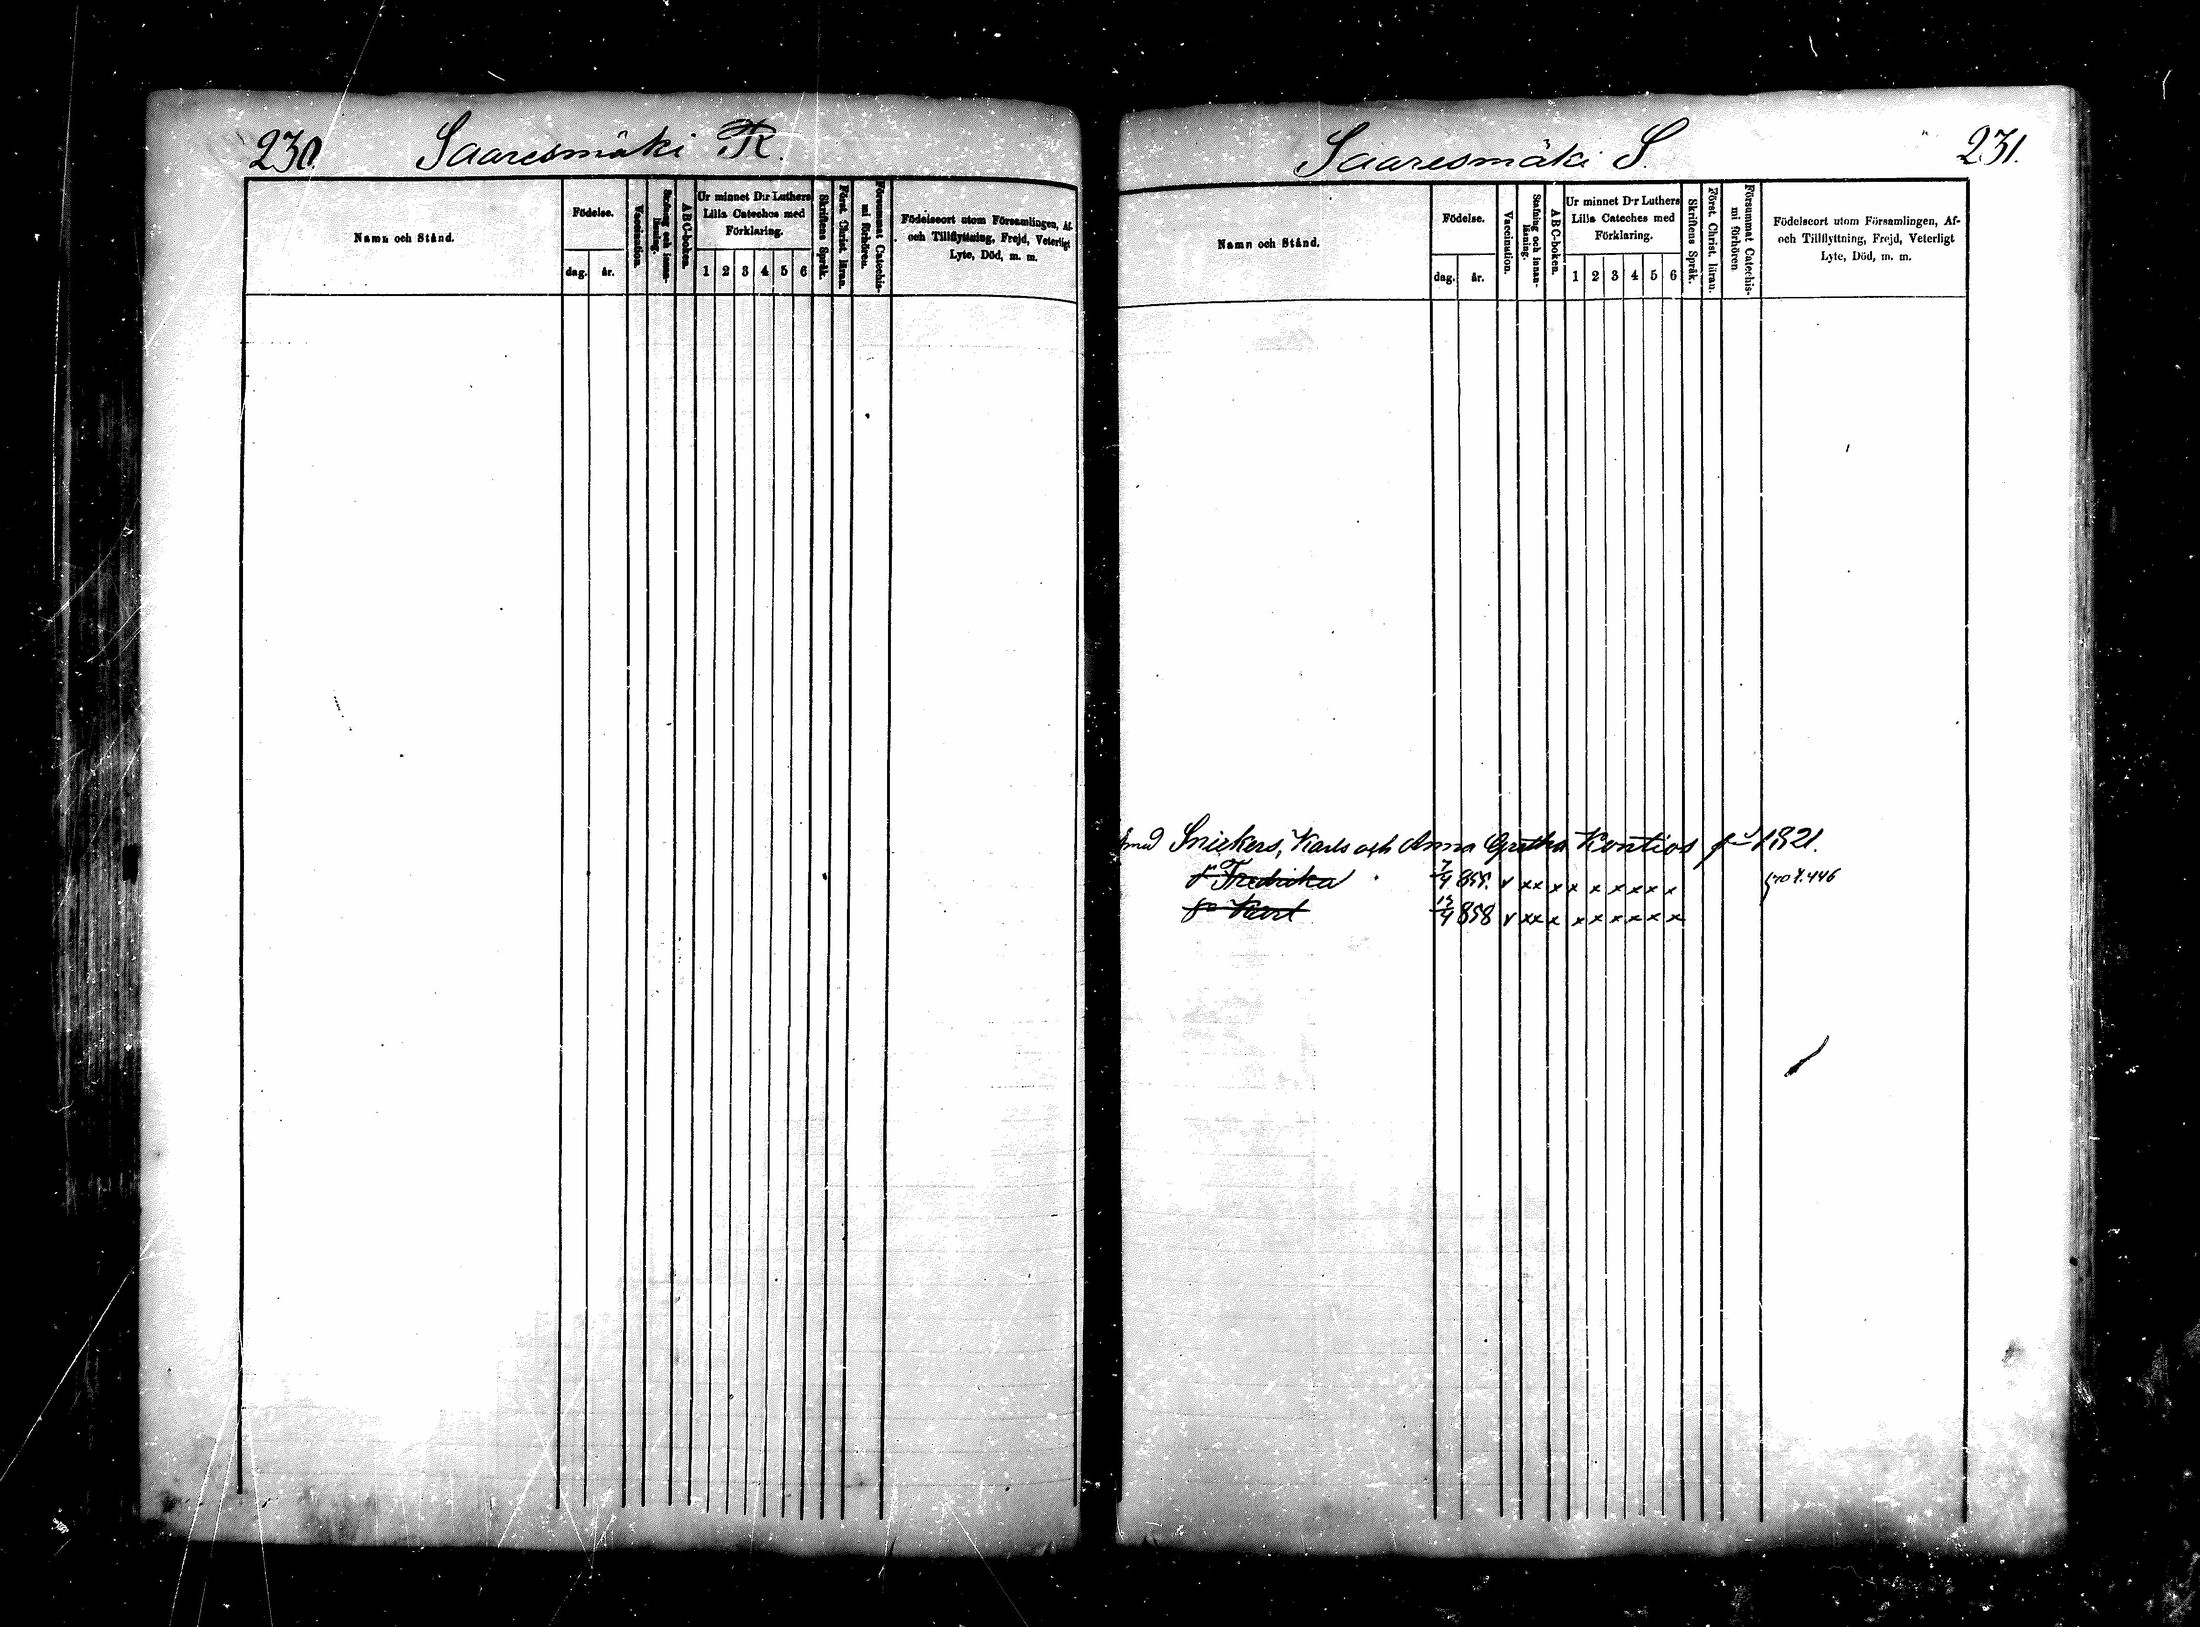 230. Saaresmäki R.
Namn och Stånd.
Födelse.
dag. år.
Vaccination.
Stafning och innan-läsning.
ABC-boken.
Ur minnet D:r Luthers
Lilla Cateches med
Förklaring.
1 2 3 4 5 6
Skriftens Språk.
Först. Christ. läran.
Försummat Catechis-
mi förhören.
Födelseort utom Församlingen, Af-
och Tillflyttning, Frejd, Veterligt
Lyte, Död, m. m.
Saaresmäki S. 231.
Namn och Stånd.
Födelse.
dag. år.
Vaccination.
Stafning och innan-läsning.
ABC-boken.
Ur minnet D:r Luthers
Lilla Cateches med
Förklaring.
1 2 3 4 5 6
Skriftens Språk.
Först. Christ. läran.
Försummat Catechis-
mi förhören
Födelseort utom Församlingen, Af-
och Tillflyttning, Frejd, Veterligt
Lyte, Död, m. m.
Snickers, Karls och Anna Gretha Kontios 1821.
Fredrika 7/4 855. v xx x x x x x x x 70 f. 446
Karl 13/4 858 v xx x x x x x x x